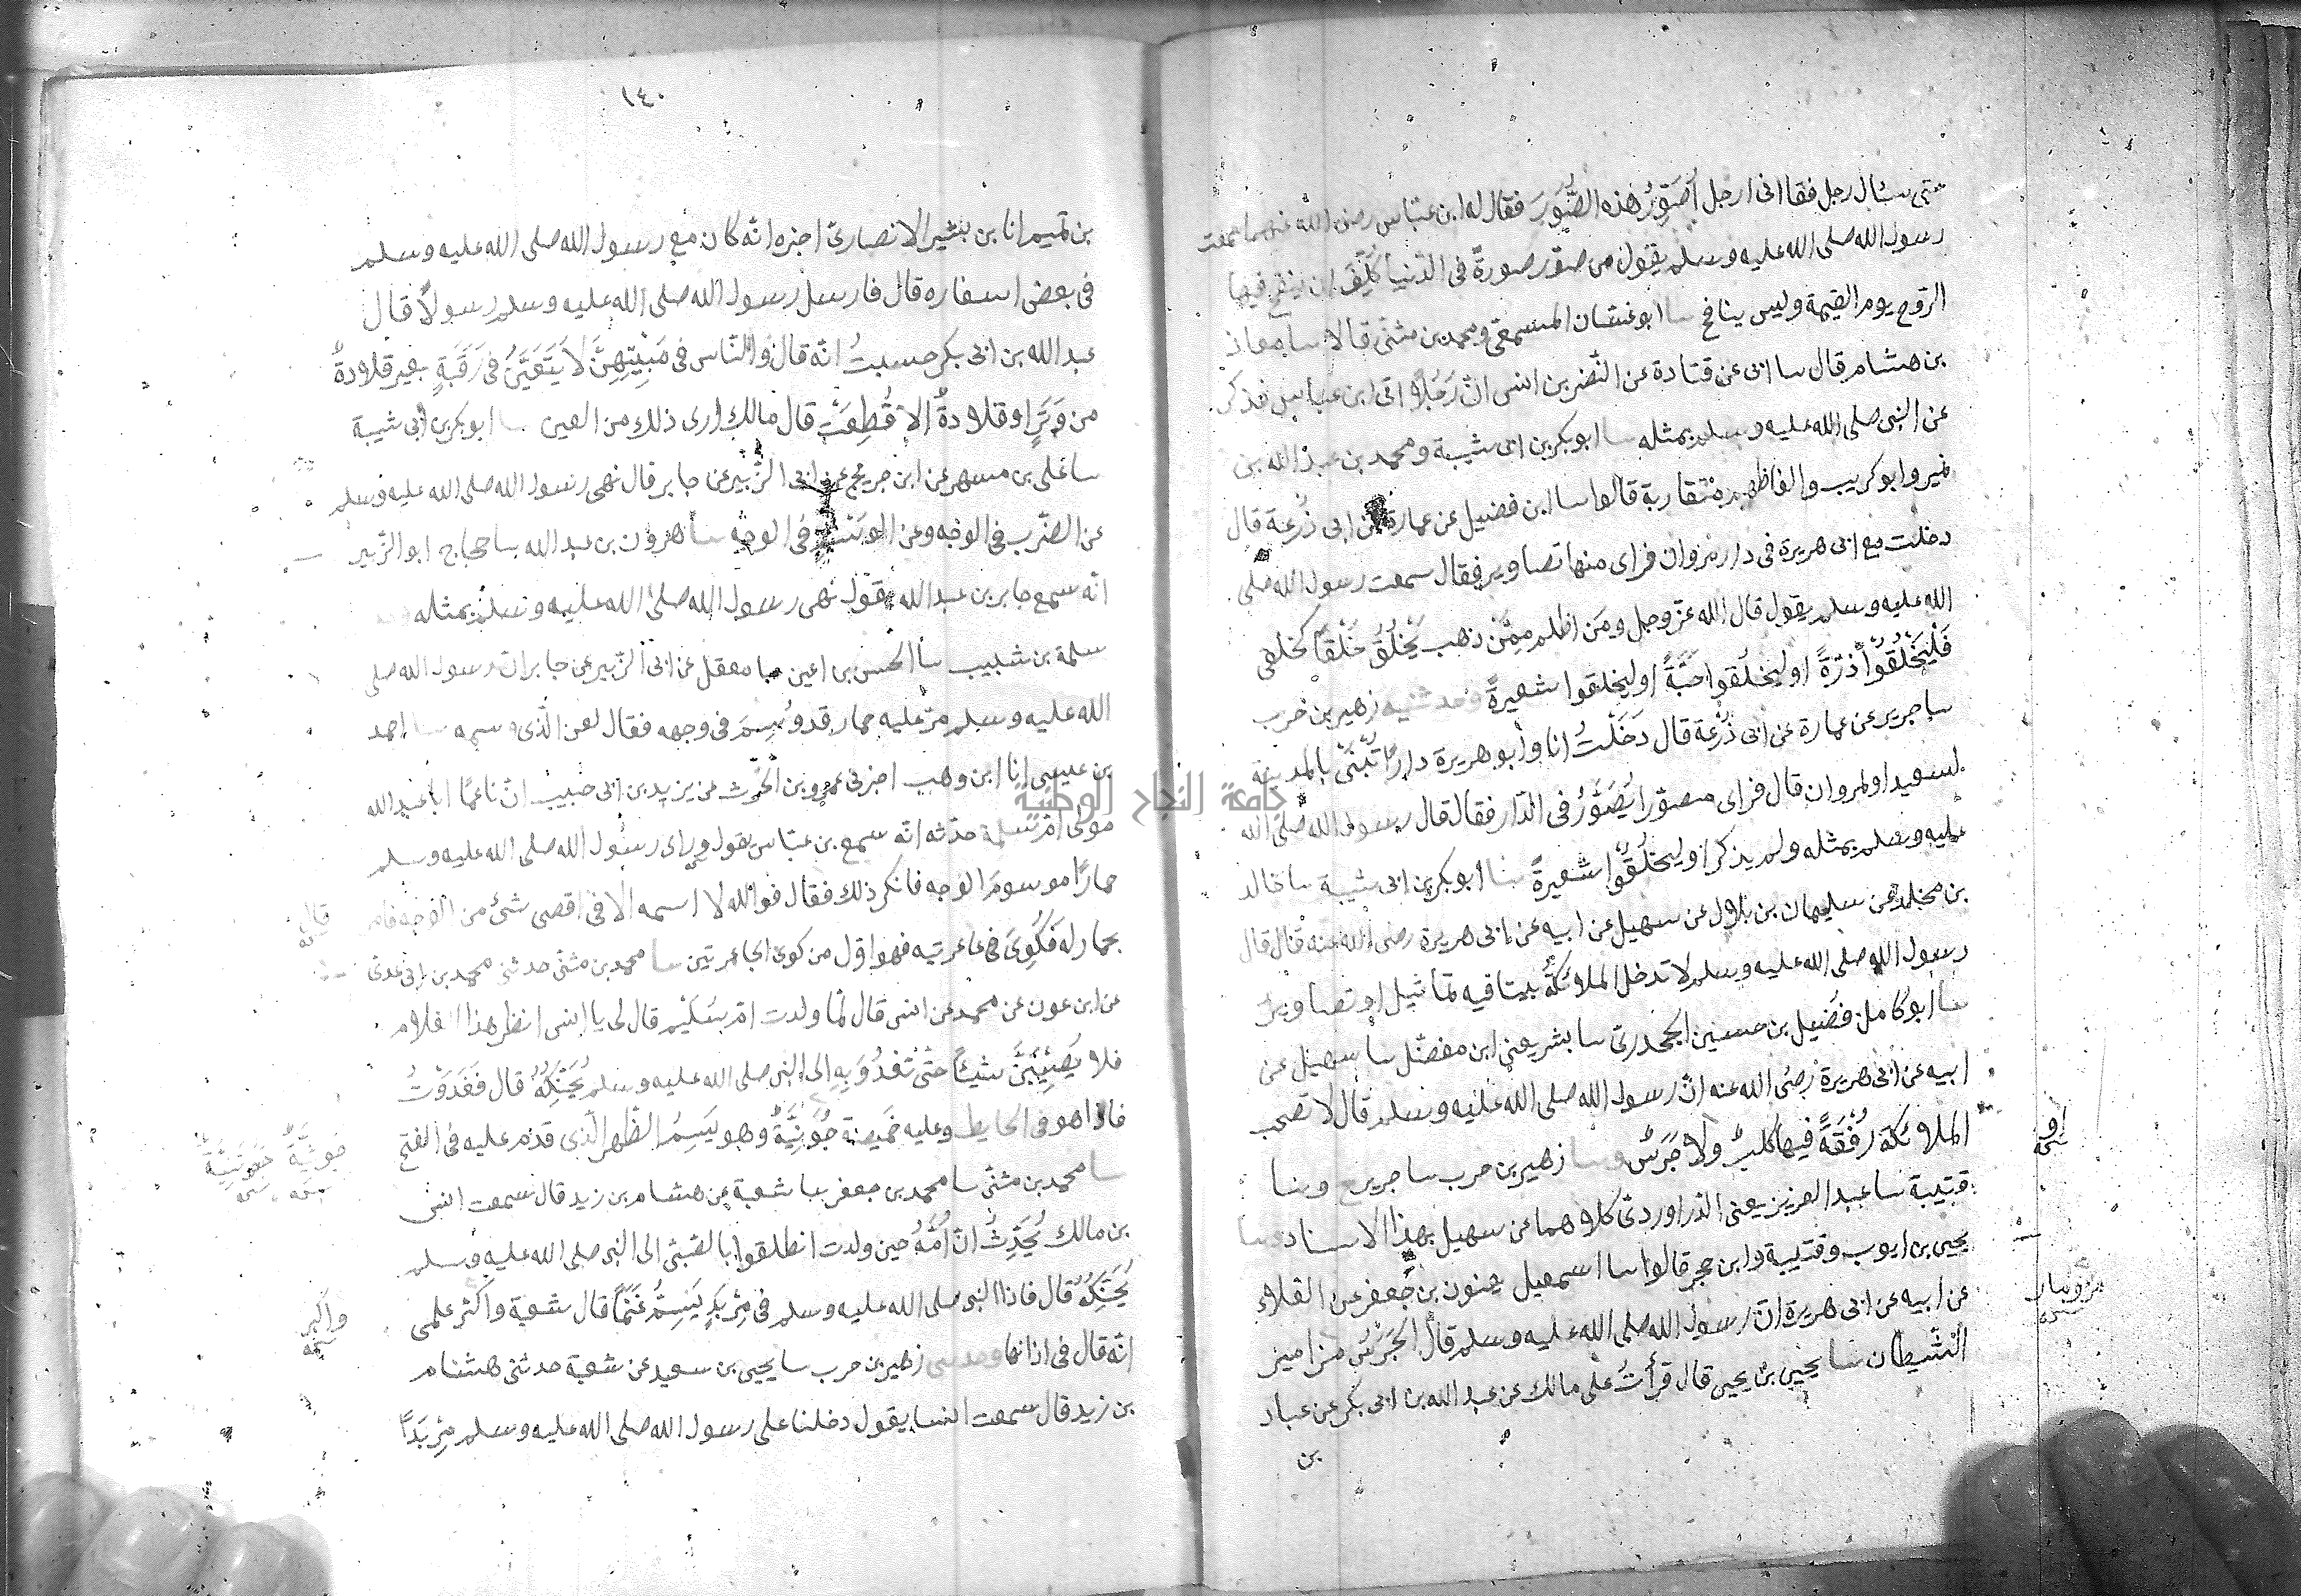 حتى سئال رجل فقا انى ارجل أُصَوِّرُ هذه الصُّوَرَ فقال له ابن عبّاس رضى الله عنهما سمعت
رسول الله صلى الله عليه وسلم يقول من صوّر صورةً فى الدّنيا كُلِّفَ ان ينفخ فيها
الرّوح يوم القيمة وليس ينافخ سا ابو غسّان المسمعىّ ومحمد بن مثنّى قالا سا معاذ
بن هشام قال سا ابى عن قتادة عن النّضر بن انس انّ رَجُلًا اتى ابن عباس فذكر
عن النبى صلى الله عليه وسلم بمثله سا ابو بكر بن ابى شيبة ومحمد بن عبد الله بن
نمير وابو كريب والفاظهم متقاربة قالوا سا ابن فضيل عن عمارة عن ابى زُرعة قال
دخلت مع ابى هريرة فى دار مروان فراى منها تصاوير فقال سمعت رسول الله صلى
الله عليه وسلم يقول قال الله عزّ وجل ومَن اظلم ممّن ذهب يَخْلُقُ خَلْقًا كخلقى
فَلْيَخْلُقُوْا ذَرّةً او ليخلُقوا حَبَّةً او ليخلقوا شعيرةً وحدثنيه زهير بن حرب
سا جرير عن عمارة عن ابى زُرعة قال دَخَلْتُ انا وأبو هريرة دارًا تُبْنَى بالمدينة
لسعيد او لمروان قال فراى مصوّرا يُصَوِّرُ فى الدّار فقال قال رسول الله صلى الله
عليه وسلم بمثله ولم يذكر او ليخلُقُوْا شعيرةً سا ابو بكر بن ابى شيبة سا خالد
بن مخلد عن سليمان بن بلال عن سهيل عن ابيه عن ابى هريرة رضى الله عنه قال قال
رسول الله صلى الله عليه وسلم لا تدخل الملائكةُ بيتا فيه تماثيل او تصاوير
سا ابو كامل فضيل بن حسين الجحدرىّ سا بشر يعنى ابن مفضّل سا سهيل عن
ابيه عن ابى هريرة رضى الله عنه انّ رسول الله صلى الله عليه وسلم قال لا تصحب
الملائكة رُفْقَةً فيها كلبٌ ولا جَرَسٌ وسا زهير بن حرب سا جرير ح وسا
او
نسخه
قتيبة سا عبد العزيز يعنى الدّراوردىّ كلاهما عن سهيل بهذا الاسناد وسا
يحيى بن ايوب وقتيبة وابن حجر قالوا سا اسمعيل يعنون بن جعفر عن العلاء
عن ابيه عن ابى هريرة انّ رسول الله صلى الله عليه وسلم قال الجَرَسُ مزامير
نسخه
الشّيطان سا يحيى بن يحيى قال قرأتُ على مالك عن عبد الله بن ابى بكر عن عباد
بن
١٤٠
بن تميم انا بن بشير الانصارىّ اخبره انّه كان مع رسول الله صلى الله عليه وسلم
فى بعض اسفاره قال فارسل رسول الله صلى الله عليه وسلم رسولًا قال
عبد الله بن ابى بكر حسبتُ انّه قال والنّاس فى مَبِيْتِهِنَّ لا فى رَقَبَةِ بعير قلادةٌ
من وَتَرٍ او قلادةٌ الا قُطِعَتْ قال مالك ارى ذلك من العين سا ابو بكر بن ابى شيبة
سا على بن مسهر عن ابن جريج عن ابى الزّبير عن جابر قال نهى رسول الله صلى الله عليه وسلم
عن الضّرب فى الوجه وعن الوسم فى الوجه سا هرون بن عبد الله سا حجاج ابو الزّبير
انّه سمع جابر بن عبد الله يقول نهى رسول الله صلى الله عليه وسلم بمثله
سلمة بن شبيب سا الحسن بن اعين سا معقل عن ابى الزّبير عن جابر انّ رسول الله صلى
الله عليه وسلم مرّ عليه حمار قد وُسِمَ فى وجهه فقال لعن الّذى وسمه سا احمد
بن عيسى انا ابن وهب اخبرنى عمرو بن الحٰرث عن يزيد بن ابى حبيب انّ ناعمًا ابا عبد الله
جامعة النجاح الوطنية
مولى امّ سلمة حدّثه انّه سمع بن عبّاس يقول وراى رسول الله صلى الله عليه وسلم
حمارًا موسومَ الوجه فانكر ذلك فقال فوالله لا اسمه الا فى اقصى شئ من الوجه فامر
قال
نسخه
بحمار له فَكُوِىَ فى جاعرتيه فهو اوّل من كوى الجاعرتين سا محمد بن مثنّى حدثنى محمد بن ابى عدىّ
عن ابن عون عن محمد عن انس قال لمّا ولدت امّ سُلَيْم قال لى يا انس انظر هذا الغلام
فلا يُصِيْبَنَّ شيئًا حتّى تَغْدُوَ بِهِ الى النبى صلى الله عليه وسلم يُحَنِّكُهُ قال فَغَدَوْتُ
فاذا هو فى الحايط وعليه خميصة جُوْنِيَّةٌ وهو يَسِمُ الظّهر الّذى قدم عليه فى الفتح
نسخه نسخه
سا محمد بن مثنّى سا محمد بن جعفر سا شعبة عن هشام بن زيد قال سمعت انس
بن مالك يُحَدِّثُ انّ اُمَّهُ حين ولدت انطلقوا بالصّبىّ الى النبى صلى الله عليه وسلم
يُحَنِّكُهُ قال فاذا النبى صلى الله عليه وسلم فى مِرْبَدٍ يَسِمُ غَنَمًا قال شعبة واكثر علمى
واكبر
نسخه
انّه قال فى اذانها وحدثنى زهير بن حرب سا يحيى بن سعيد عن شعبة حدثنى هشام
بن زيد قال سمعت انسا يقول دخلنا على رسول الله صلى الله عليه وسلم مِرْبَدًا